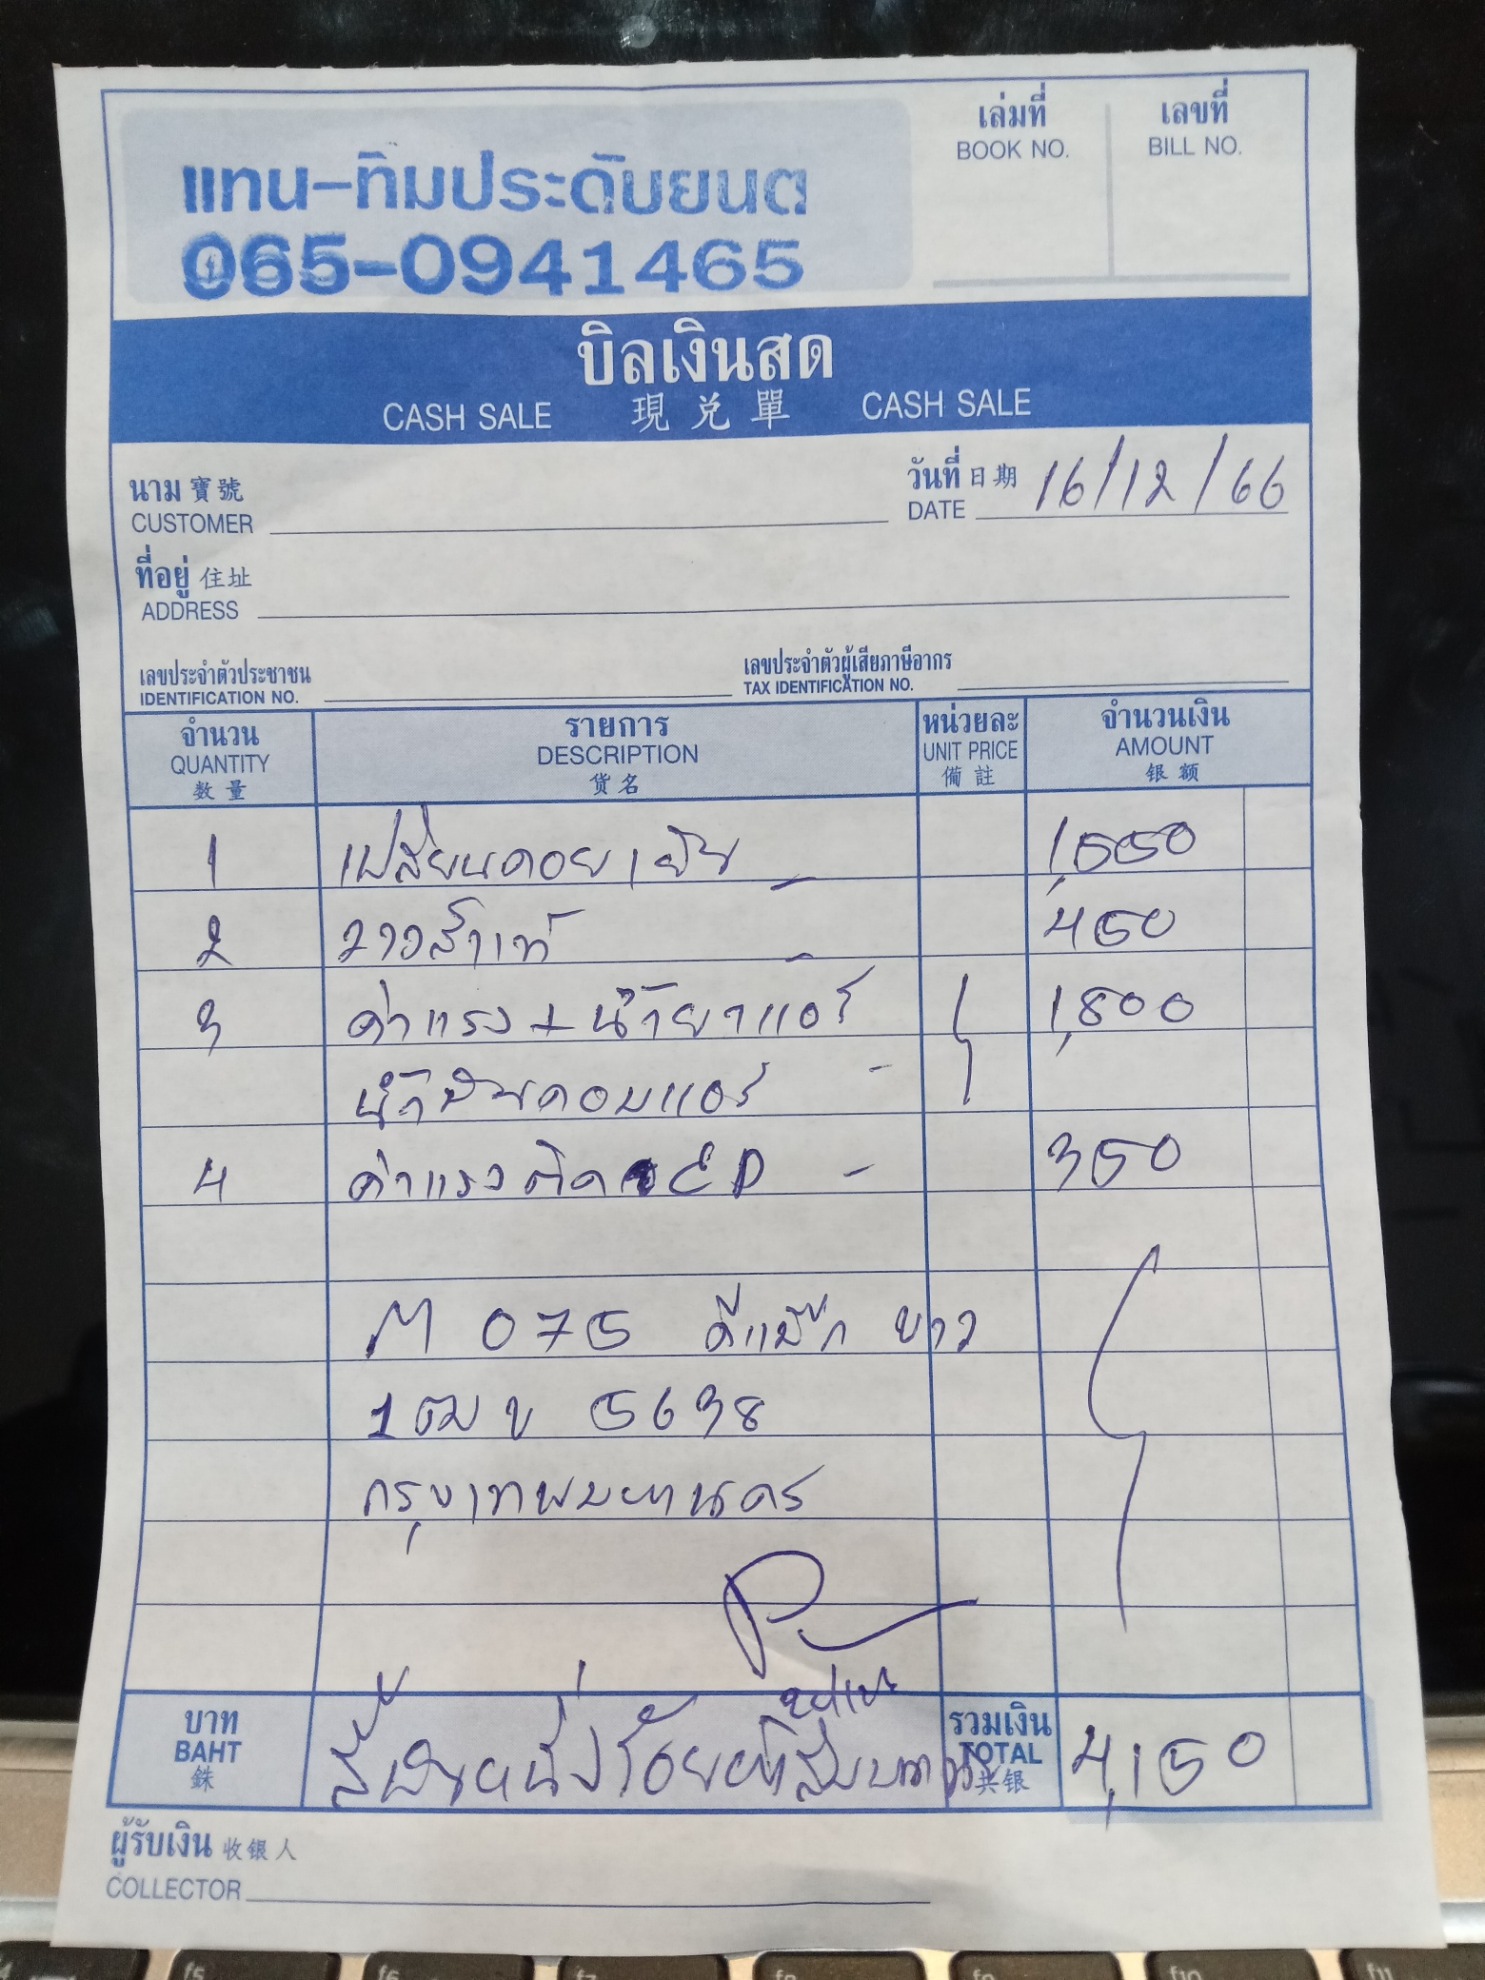 เล่มที่ เลขที่
BOOK NO. BILL NO.
แทน-ทิมประดับยนต
065-0941465
บิลเงินสด
CASH SALE 現兑單 CASH SALE
นาม 寶號 วันที่ 日期 16/12/66
CUSTOMER DATE
ที่อยู่ 住址
ADDRESS
เลขประจำตัวประชาชน เลขประจำตัวผู้เสียภาษีอากร
IDENTIFICATION NO. TAX IDENTIFICATION NO.
จำนวน รายการ หน่วยละ จำนวนเงิน
QUANTITY DESCRIPTION UNIT PRICE AMOUNT
数量 貨名 備註 银额
1 เปลี่ยนคอยเย็น 1,550
2 วาวส์แท้ 450
3 ค่าแรง+น้ำยาแอร์ 1,800
น้ำมันคอมแอร์
4 ค่าแรงติด 350
M 075 ดีแม๊ก ขาว
1ฒข 5638
กรุงเทพมหานคร
บาท รวมเงิน
BAHT สี่พันหนึ่งร้อยห้าสิบบาท TOTAL 4,150
銖 共银
ผู้รับเงิน 收银人
COLLECTOR